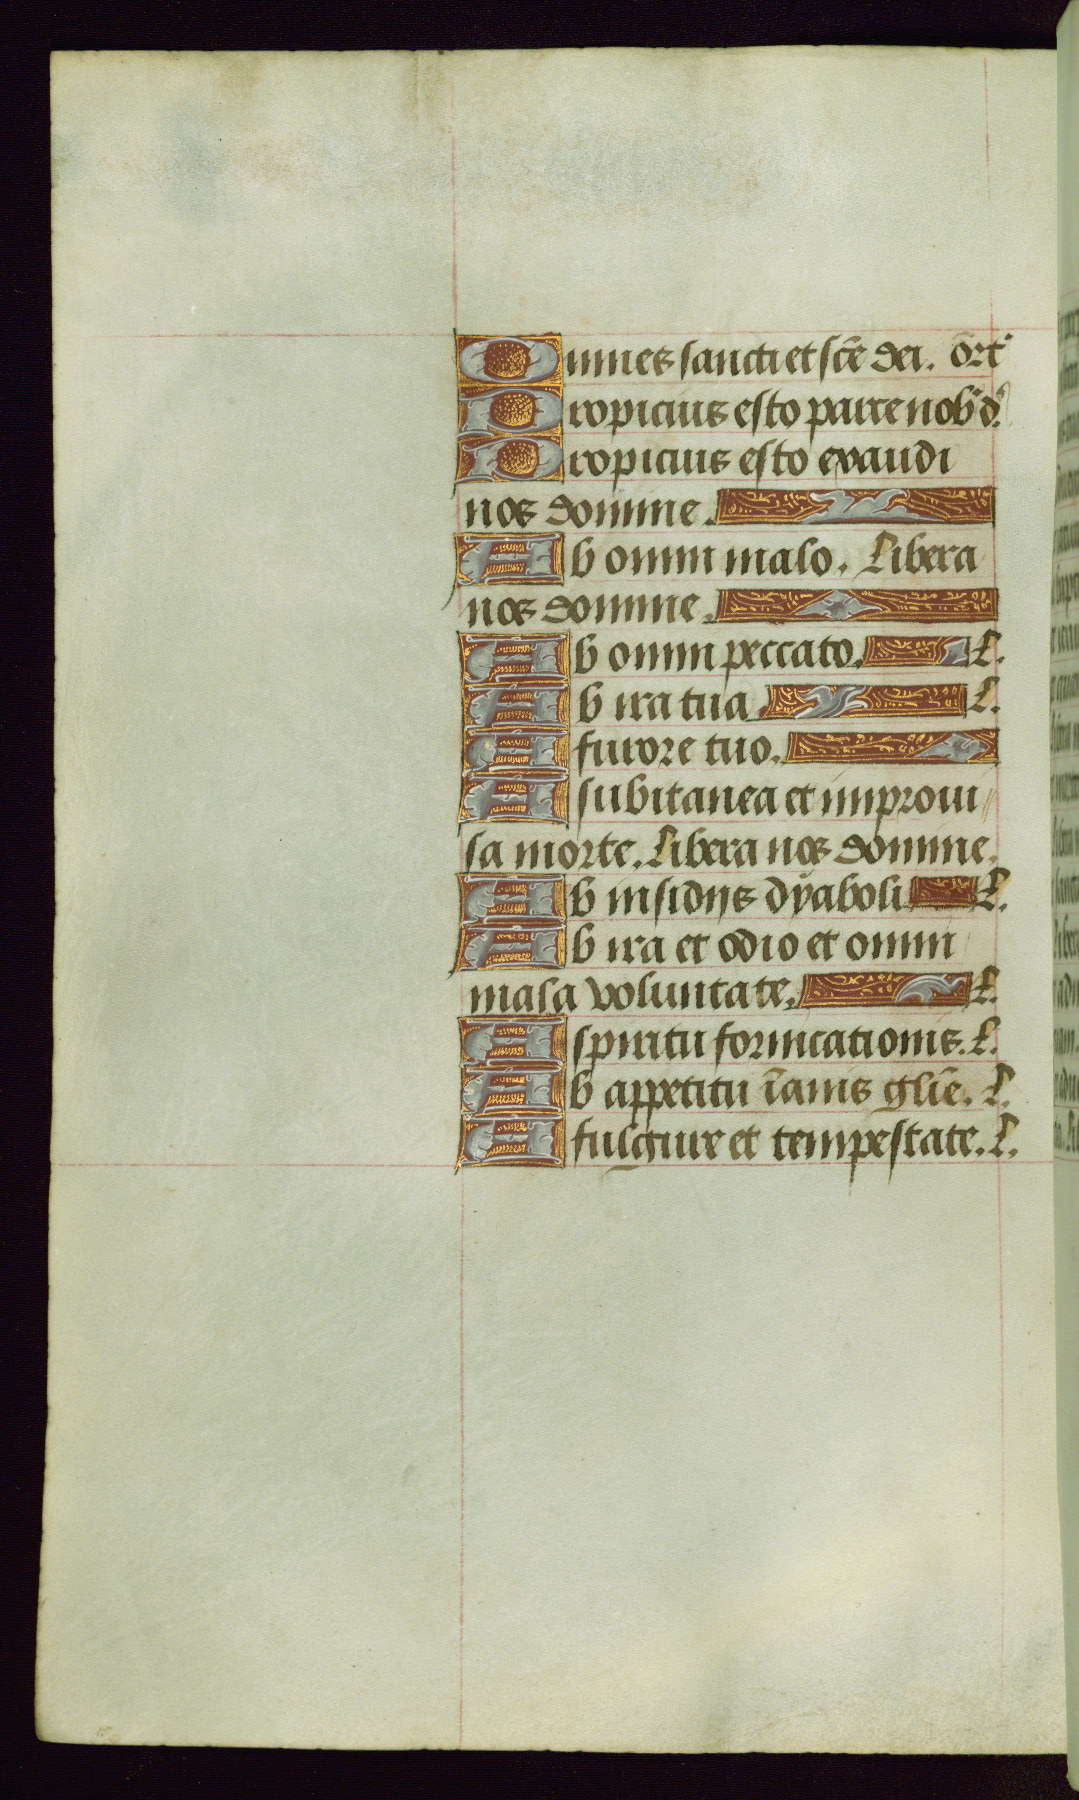 Omnes sancti et scē dei. Ort
Propicius esto parce nob dº
Propicius esto exaudi
nos domine.
Ab omni malo. Libera
nos domine.
Ab omni peccato. L.
Ab ira tua L.
A furore tuo.
A subitanea et improui
sa morte. Libera nos domine.
Ab insidijs dyaboli L.
Ab ira et odio et omni
mala voluntate. L.
A spiritu fornicationis. L.
Ab appetitu īanis glīe. L.
A fulgure et tempestate. L.